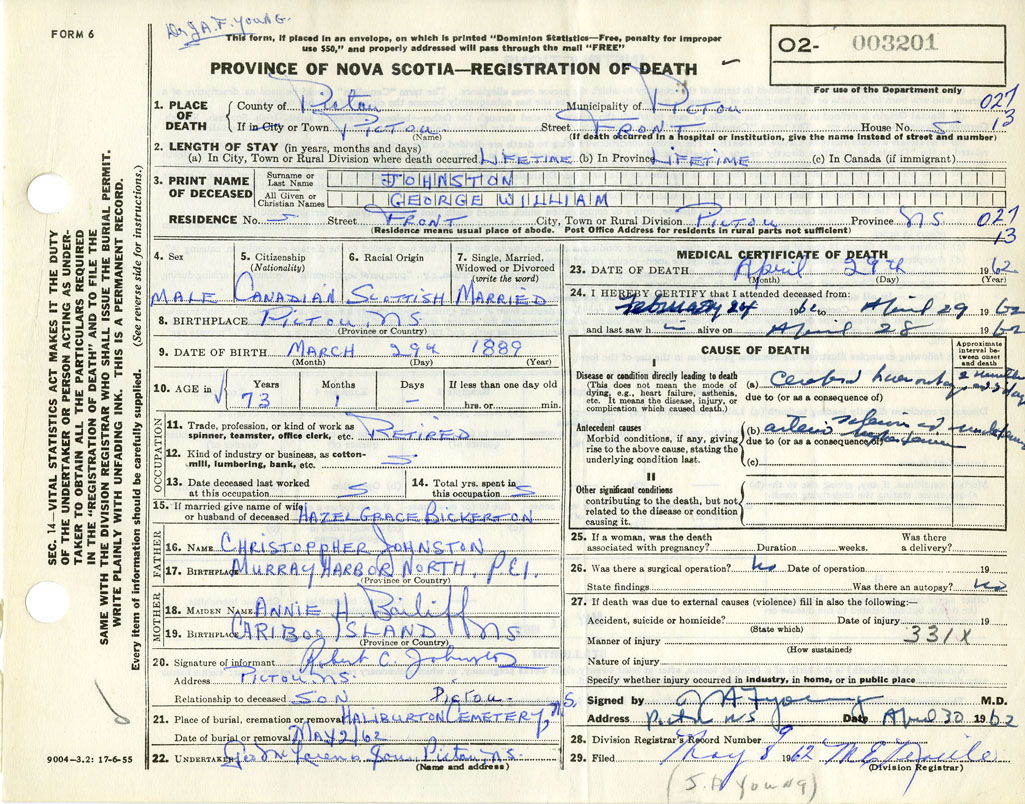 Dr J.A.F. Young.
FORM 6
This form, if placed in an envelope, on which is printed "Dominion Statistics—Free, penalty for improper
use $50," and properly addressed will pass through the mail "FREE"
PROVINCE OF NOVA SCOTIA—REGISTRATION OF DEATH
02- 003201
For use of the Department only
027
13
1. PLACE OF DEATH
County of Pictou Municipality of Pictou
If in City or Town Pictou Street Front House No. 5
(Name) (If death occurred in a hospital or institution, give the name instead of street and number)
2. LENGTH OF STAY (in years, months and days)
(a) In City, Town or Rural Division where death occurred Lifetime (b) In Province Lifetime (c) In Canada (if immigrant)
3. PRINT NAME OF DECEASED
Surname or Last Name JOHNSTON
All Given or Christian Names GEORGE WILLIAM
RESIDENCE No. 5 Street Front City, Town or Rural Division Pictou Province NS
027
13
(Residence means usual place of abode. Post Office Address for residents in rural parts not sufficient)
4. Sex
MALE
5. Citizenship (Nationality)
CANADIAN
6. Racial Origin
SCOTTISH
7. Single, Married, Widowed or Divorced (write the word)
MARRIED
8. BIRTHPLACE Pictou, NS.
(Province or Country)
9. DATE OF BIRTH MARCH 29th 1889
(Month) (Day) (Year)
10. AGE in
Years Months Days If less than one day old
73 1 - hrs. or min.
OCCUPATION
11. Trade, profession or kind of work as
spinner, teamster, office clerk, etc. RETIRED
12. Kind of industry or business, as cotton-
mill, lumbering, bank, etc.
13. Date deceased last worked
at this occupation
14. Total yrs. spent in
this occupation
15. If married give name of wife
or husband of deceased HAZEL GRACE BICKERTON
FATHER
16. NAME CHRISTOPPHER JOHNSTON
17. BIRTHPLACE MURRAY HARBOR NORTH, PEI.
(Province or Country)
MOTHER
18. MAIDEN NAME ANNIE H Bailiff
19. BIRTHPLACE CARIBOO ISLAND NS
(Province or Country)
20. Signature of informant Robert C. Johnston
Address PICTOU, NS.
Relationship to deceased SON
21. Place of burial, cremation or removal HALIBURTON CEMETERY, Pictou NS,
Date of burial or removal MAY 2/62
22. UNDERTAKER Pictou, NS.
(Name and address)
MEDICAL CERTIFICATE OF DEATH
23. DATE OF DEATH April 29th 1962
(Month) (Day) (Year)
24. I HEREBY CERTIFY that I attended deceased from:
February 24 1962 to April 29 1962
and last saw him alive on April 28 1962
CAUSE OF DEATH
Approximate interval between onset and death
I
Disease or condition directly leading to death
(This does not mean the mode of
dying, e.g., heart failure, asthenia,
etc. It means the disease, injury, or
complication which caused death.)
(a) Cerebral
due to (or as a consequence of)
Antecedent causes
Morbid conditions, if any, giving
rise to the above cause, stating the
underlying condition last.
(b)
due to (or as a consequence of)
(c)
II
Other significant conditions
contributing to the death, but not
related to the disease or condition
causing it.
25. If a woman, was the death
associated with pregnancy? Duration weeks. Was there
a delivery?
26. Was there a surgical operation? No Date of operation 19
State findings Was there an autopsy? No
27. If death was due to external causes (violence) fill in also the following:—
Accident, suicide or homicide? Date of injury 19
(State which)
331X
Manner of injury
(How sustained)
Nature of injury
Specify whether injury occurred in industry, in home, or in public place
Signed by J A F Young M.D.
Address Pictou NS Date April 30 1962
28. Division Registrar's Record Number 9
29. Filed May 8 1962
(Division Registrar)
(J. A YOUNG)
SEC. 14—VITAL STATISTICS ACT MAKES IT THE DUTY
OF THE UNDERTAKER OR PERSON ACTING AS UNDER-
TAKER TO OBTAIN ALL THE PARTICULARS REQUIRED
IN THE "REGISTRATION OF DEATH" AND TO FILE THE
SAME WITH THE DIVISION REGISTRAR WHO SHALL ISSUE THE BURIAL PERMIT.
WRITE PLAINLY WITH UNFADING INK. THIS IS A PERMANENT RECORD.
Every item of information should be carefully supplied. (See reverse side for instructions.)
9004-3.2: 17-6-55